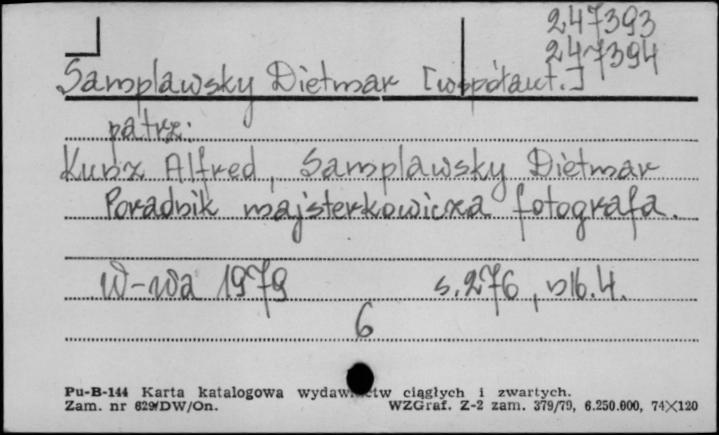 247393
247394
Samplawsky Dietmar [współaut.]
patrz:
Kunz Alfred, Samplawsky Dietmar
Poradnik majsterkowicza fotografa.
W-wa 1979 s.276, nlb.4.
6
Pu-B-144 Karta katalogowa wydawnictw ciągłych i zwartych.
Zam. nr 629/DW/On. WZGraf. Z-2 zam. 379/79, 6.250.000, 74×120